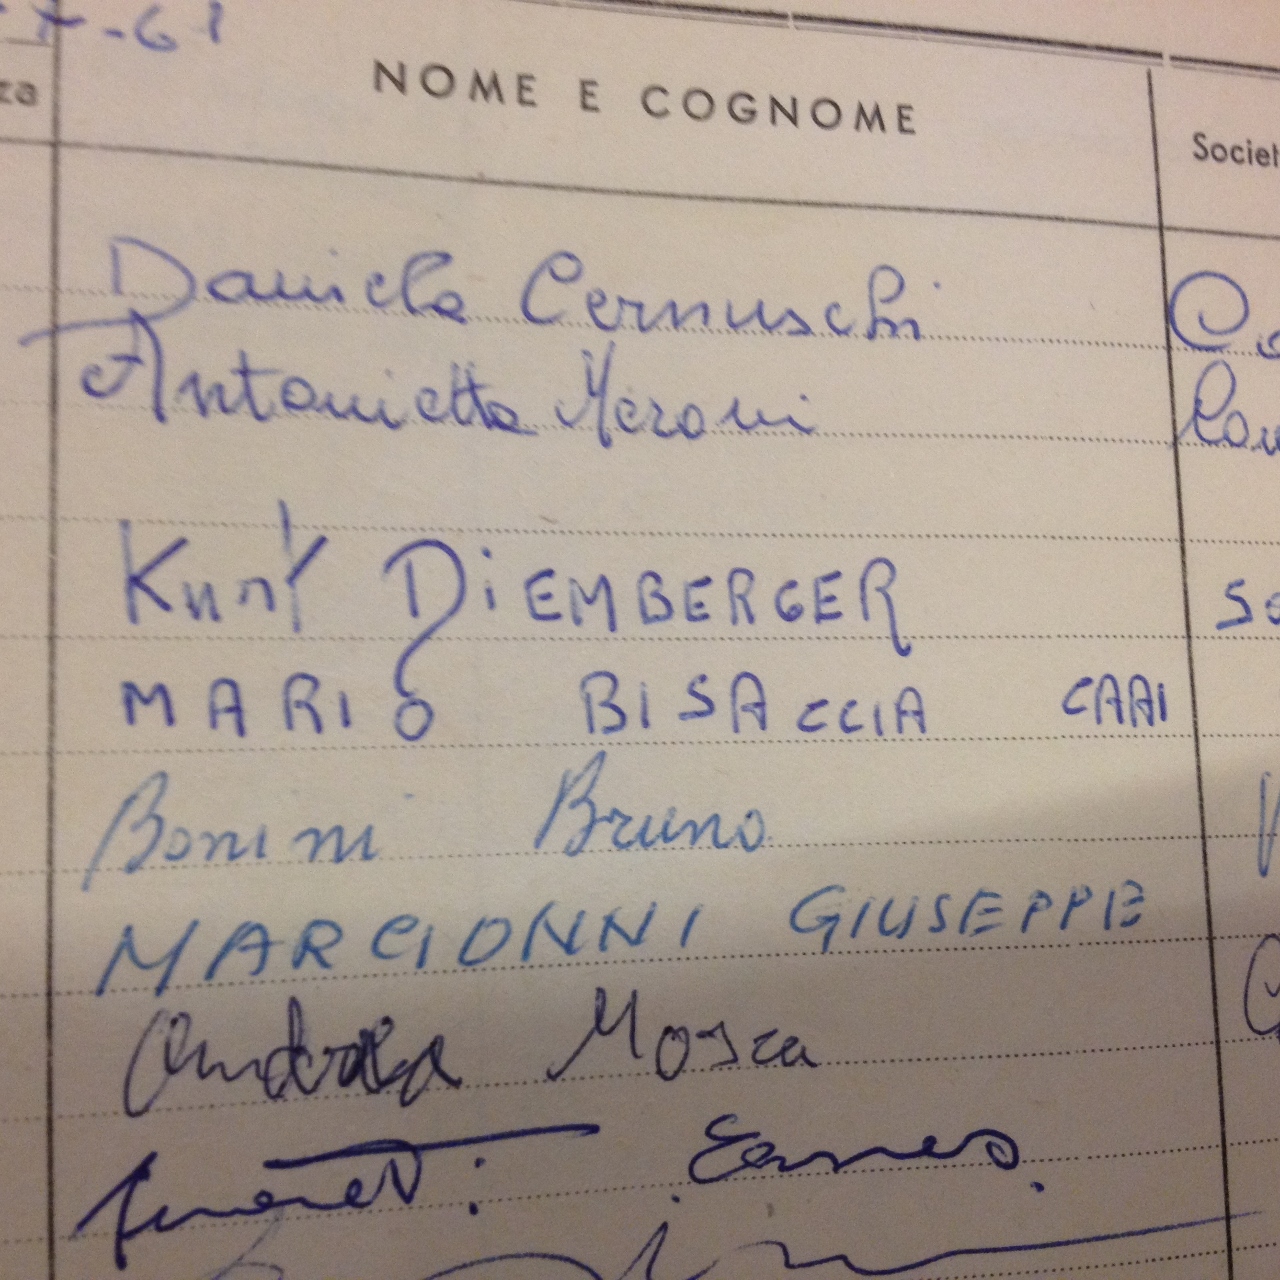 7-61
za NOME E COGNOME Societ
Daniela Cernuschi Co
Antonietta Meroni Com
Kurt DiEMBERGER SO
MARIO BISACCIA CAAI
Bonini Bruno
MARCIONNI GIUSEPPE
Andrea Mosca